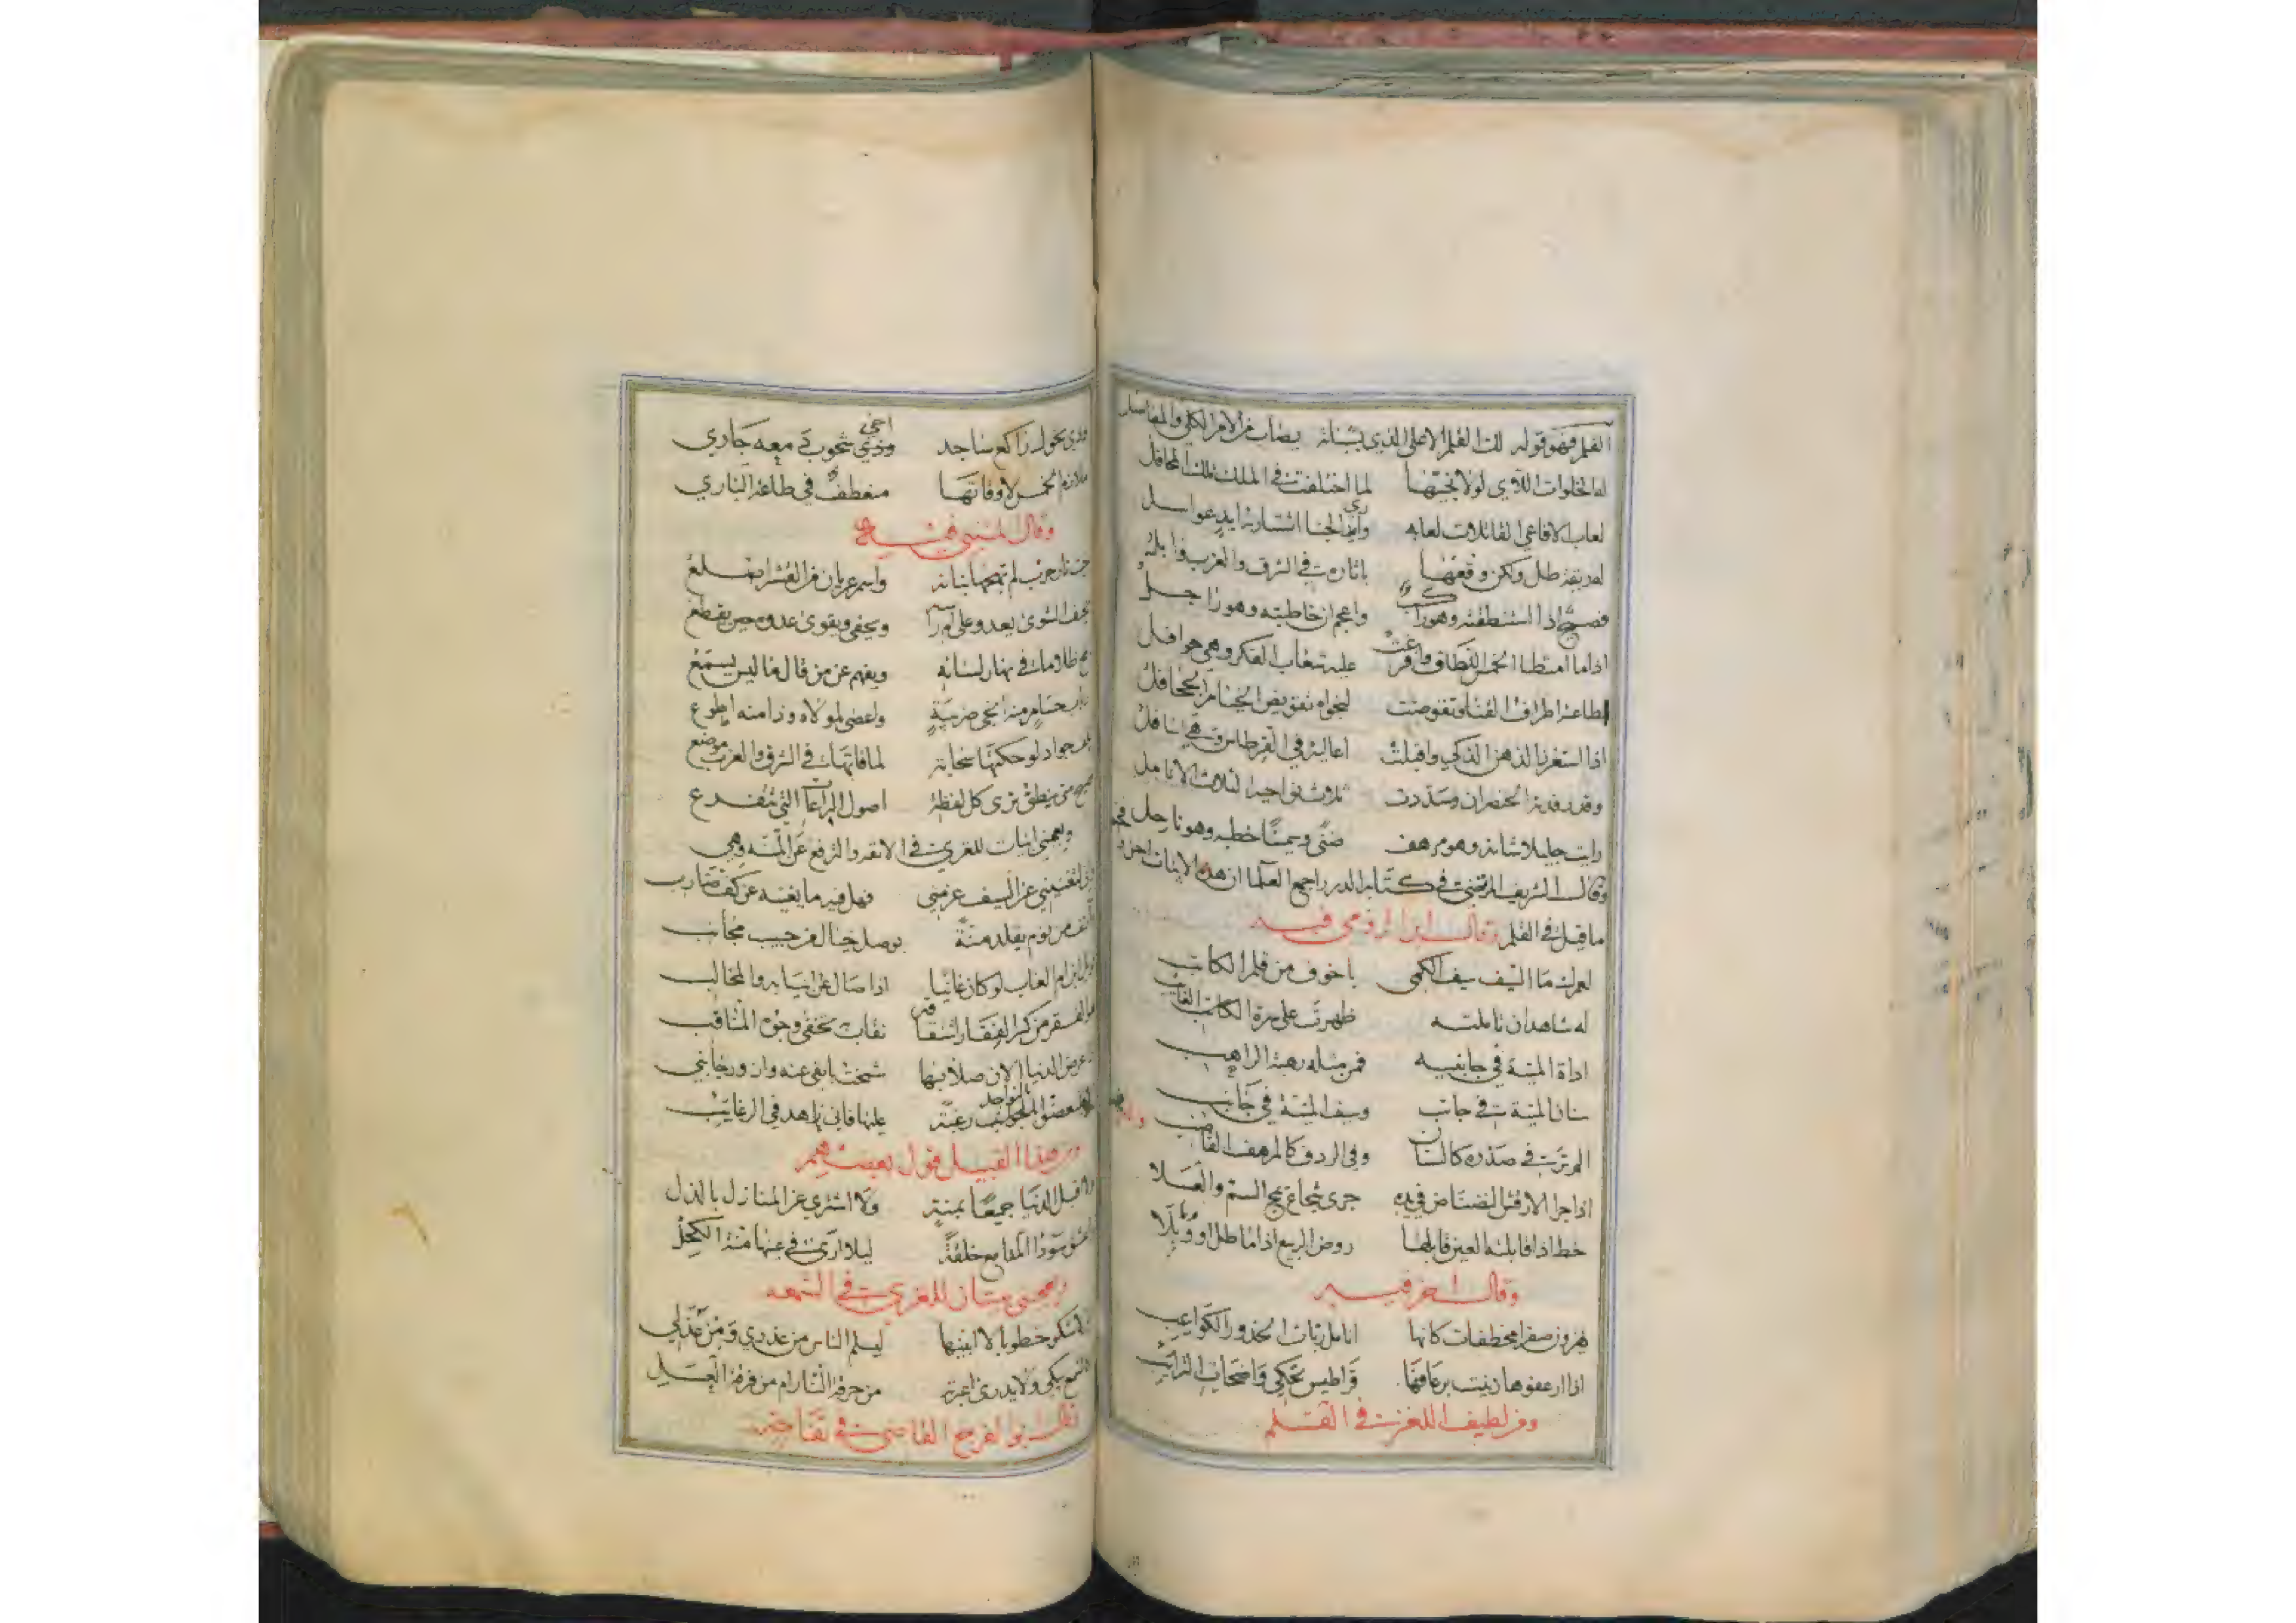 القلم فهو قوله لك القلم الاعلى الذي بشباته يصاب من الامر الكلى والمفاصل
له الخلوات اللآي لولا نجيّها لما اختلفت في الملك تلك المحافل
لعاب الافاعي القاتلات لعابه واري الجنا اشتارته ايدٍ عواسل
له ريقة طل ولكن وقعها باثاره في الشرق والغرب وابل
فصيح اذا استنطقته وهو راكب واعجم ان خاطبته وهو راجل
اذا ما امتطا الخمس اللطاف وافرغت عليه شعاب الفكر وهي حوافل
اطاعته اطراف القنا وتقوضت لنجواه تقويض الخيام الجحافل
اذا استغزر الذهن الذكي واقبلت اعاليه في القرطاس وهي اسافل
وقد رفدته الخنصران وسددت ثلاث نواحيه الثلاث الانامل
رايت جليلا شانه وهو مرهف ضنًى وسمينًا خطبه وهو ناحل
وقال الشريف المرتضى في كتابه الدرر اجمع العلما ان هذه الابيات اجود
ما قيل في القلم وقال ابن الرومي فيه
لعمرك ما السيف سيف الكمي باخوف من قلم الكاتب
له شاهدان تاملته ظهرت على سره الكاتب الغايب
اداة المنية في جانبيه فمن مثله رهبة الراهب
سنان المنية في جانب وسيف المنية في جانب
الم تر في صدره كالسنان وفي الردف كالمرهف القاضب
اذا جرا الارقش النضناض في يده جرى شجاع يمج السم والعسلا
خط اذا قابلته العين قابلها روض الربيع اذا ما طل او وبلا
وقال اخر فيه
يهزون صفرا مخطفات كانها انامل ربات الخدور الكواعب
اذا ارعفوها زينت برعافها قراطيس تحكي واضحات الترائب
ومن لطيف اللغز في القلم
وذي نحول راكع ساجد اخي وذي شحوب دمعه جاري
ملازم الخمس لاوقاتها منعطف في طاعة الباري
وقال المتنبي فيه
نار حرب لم تهجها بنانه واسمر عريان من القشر اصلع
نحيف الشوى يعدو على ام راسه ويحفى ويقوى عدوه حين يقطع
يمج ظلاما في نهار لسانه ويفهم عن من قال ما ليس يسمع
ذباب حسام منه انجى ضريبة واعصى لمولاه وذا منه اطوع
بكف جواد لو حكتها سحابة لما فاتها في الشرق والغرب موضع
فصيح متى ينطق ترى كل لفظة اصول البراعات التي تتفرع
ويعجبني ابيات للمغربي في الانفه والترفع عن المنه وهي
عن السيف عزمتي فهل فيه ما يغنيه عن كف ضارب
من يوم يقلد منة بوصل خيال من حبيب مجانب
لو كان غانيا اذا صال عن انيابه والمخالب
نقاب يخفي وجوه المثاقب
عرض الدنيا الان صلابتها
عليها فاني زاهد في الرغائب
ومن هذا القبيل قول بعضهم
لا اقبل الدنيا جميعًا بمنة ولا اشتري عز المنازل بالذل
واعشق سوداا المدامع خلقة ليلا ارى في عينها منة الكحل
ويعجبني بيتان للمغربي في الشمعه
خطوبا لا ابينها ليسلم الناس من عذري ومن عذلي
كالشمع يبكي ولا يدرى اعبرته من حرقة النار ام من فرقة العسل
وقال ابو الفرج القاضي في تفاحة